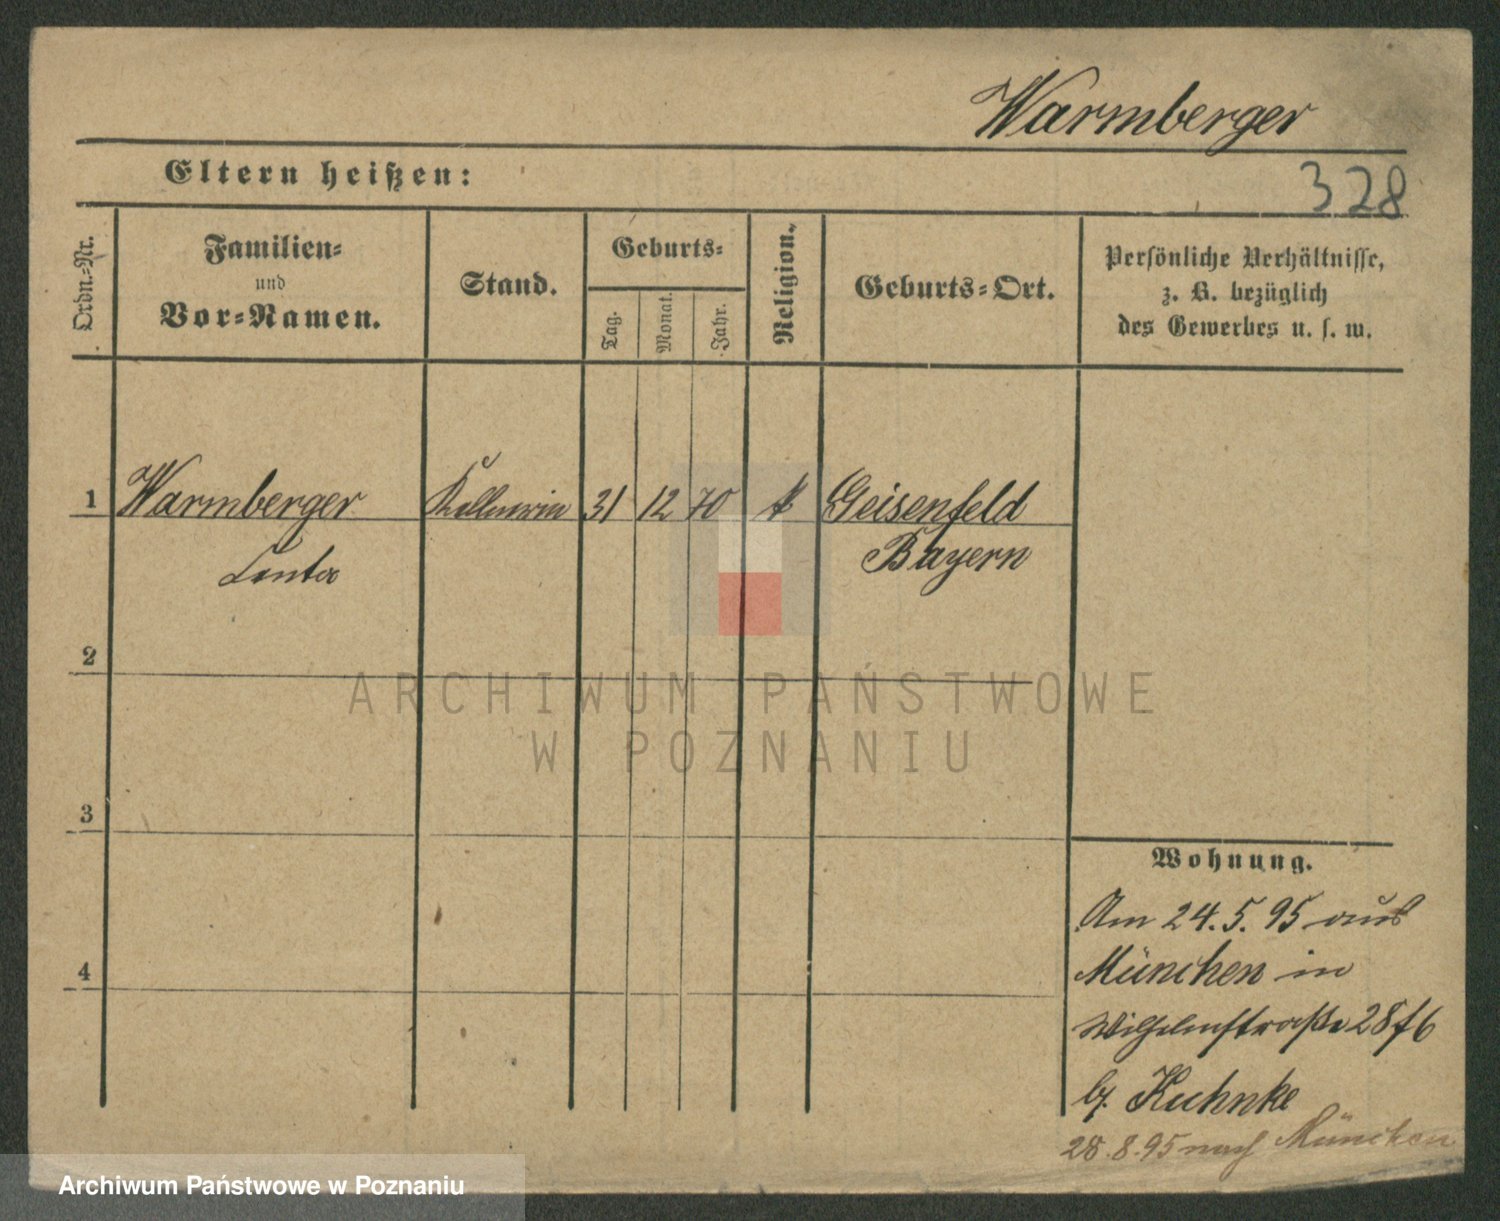 Warmberger
Eltern heißen:
328
Ordn.-Nr.
Familien-
und
Vor-Namen.
Stand.
Geburts-
Tag.
Monat.
Jahr.
Religion.
Geburts-Ort.
Persönliche Verhältnisse,
z. B. bezüglich
des Gewerbes u. s. w.
1 Warmberger Kellnerin 31 12 70 k Geisenfeld
Bayern
2
ARCHIWUM PAŃSTWOWE
W POZNANIU
3
Wohnung.
Am 24.5.95 aus
München in
4
Wilhelmstraße 28
b. Kuhnke
28.8.95 nach München
Archiwum Państwowe w Poznaniu